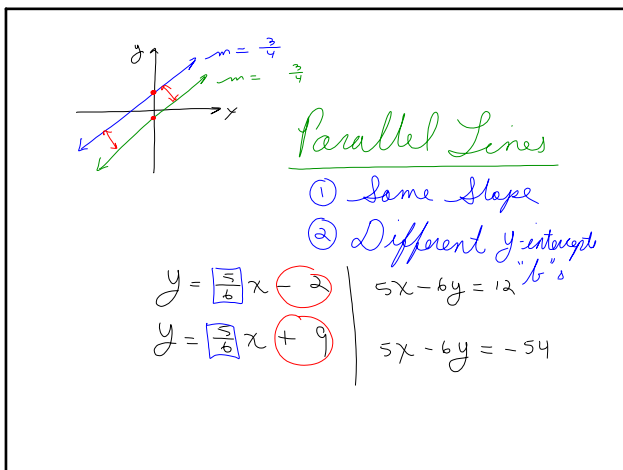 y
m = 3/4
m = 3/4
x
Parallel Lines
① Same Slope
② Different y-intercepts
"b"s
y = 5/6 x - 2
5x - 6y = 12
y = 5/6 x + 9
5x - 6y = -54